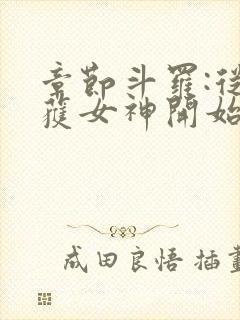 章節斗羅:從
獲女神開始
成田良悟 插畫